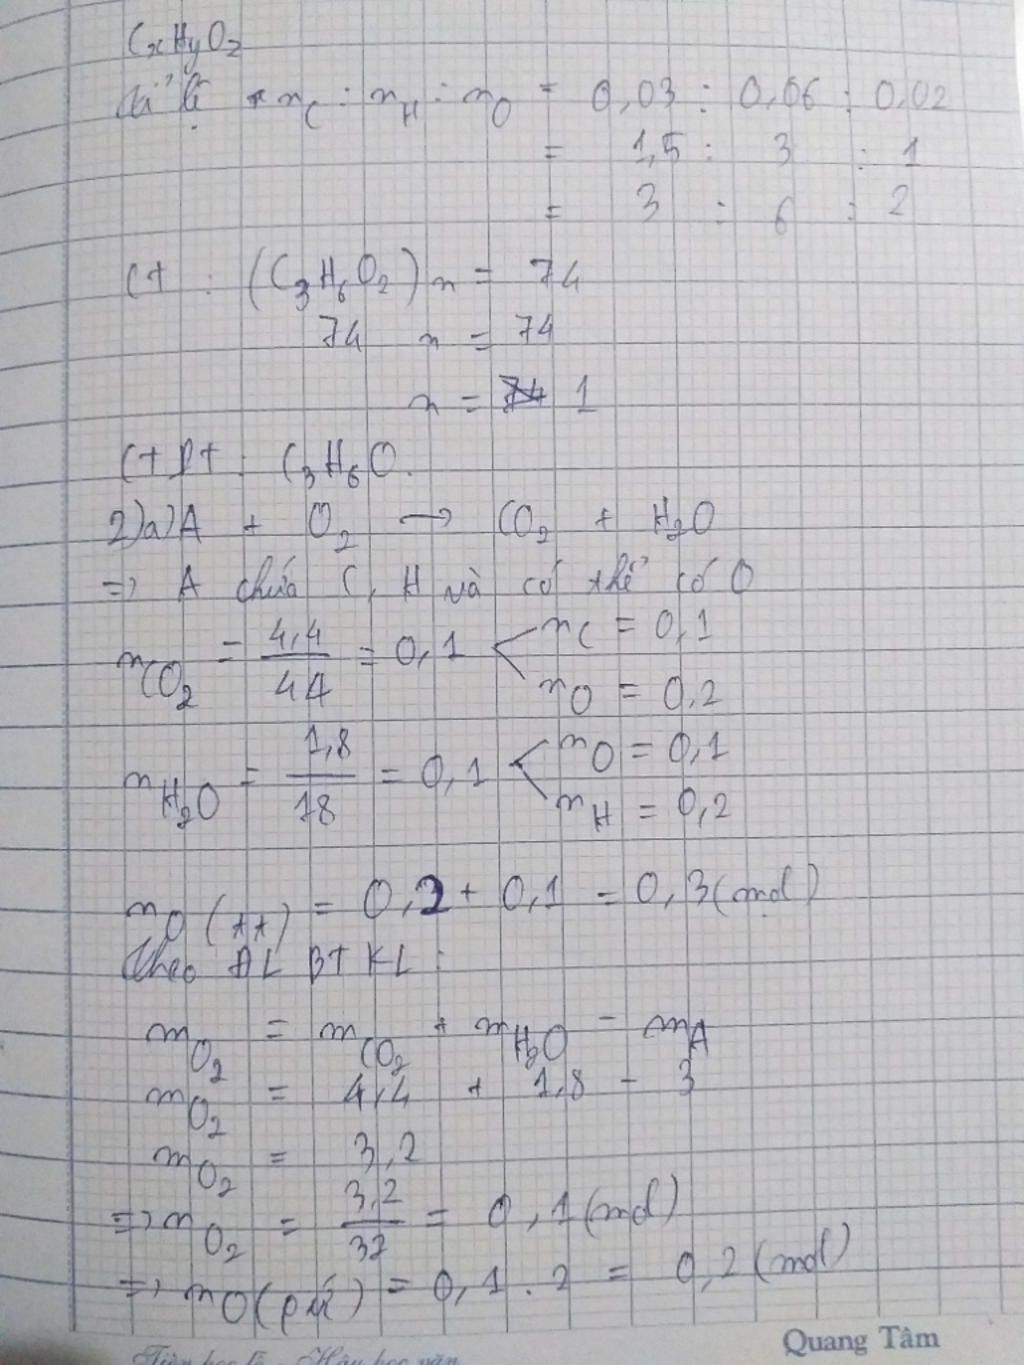 CxHyO2
Có tỉ lệ nC : nH : nO = 0,03 : 0,06 : 0,02
= 1,5 : 3 : 1
= 3 : 6 : 2
CT : (C3H6O2)n = 74
74 n = 74
n = 1
CTPT : C3H6O.
2)a) A + O2 → CO2 + H2O
=> A chứa C, H và có thể có O
nCO2 = 4,4/44 = 0,1 < nC = 0,1
nO = 0,2
nH2O = 1,8/18 = 0,1 < nO = 0,1
nH = 0,2
nO(tt) = 0,2 + 0,1 = 0,3 (mol)
Theo ĐL BT KL :
mO2 = mCO2 + mH2O - mA
mO2 = 4,4 + 1,8 - 3
mO2 = 3,2
=> nO2 = 3,2/32 = 0,1 (mol)
=> nO(pứ) = 0,1 . 2 = 0,2 (mol)
Quang Tâm
Tiên học lễ - Hậu học văn